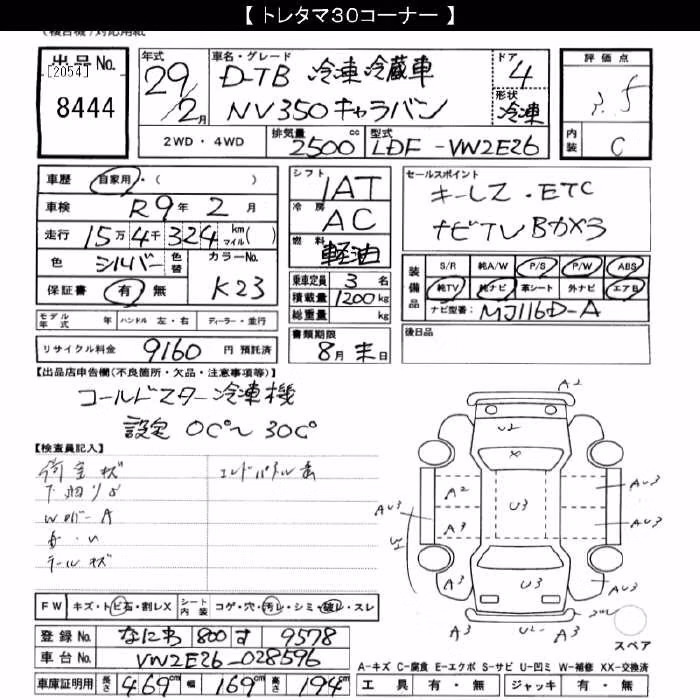 【 トレタマ30コーナー 】
出品No.
[2054]
8444
年式
29/2月
車名・グレード
D-TB 冷凍冷蔵車
NV350キャラバン
ドア
4
形状
冷凍
評価点
5
内装
C
2WD・4WD
排気量
2500 cc
型式
LDF-VW2E26
車歴 自家用・( )
車検 R9年 2月
走行 15万4千324 km マイル( )
色 シルバー 色替
カラーNo.
K23
保証書 有 無
シフト
1AT
冷房
AC
燃料
軽油
乗車定員 3名
積載量 1200kg
総重量 kg
書類期限
8月末日
セールスポイント
キーレス・ETC
ナビTVBカメラ
装備品
S/R 純A/W P/S P/W ABS
純TV 純ナビ 革シート 外ナビ エアB
ナビ型番: MJ116D-A
後日品
モデル年式 年 ハンドル 左・右 ディーラー・並行
リサイクル料金 9160 円 預託済
【出品店申告欄(不良箇所・欠品・注意事項等)】
コールドスター冷凍機
設定 0C°~30C°
【検査員記入】
荷室キズ
下廻りサビ
テールキズ
A2
U2
X
A2
U3
A3
AU3
AU3
AU3
A3
U3
A3
AU3
A3
U2
A3
スペア
FW キズ・トビ石・割レX シート内装 コゲ・穴・汚レ・シミ・破レ・スレ
登録No. なにわ 800 す 9578
車台No. VW2E26-028596
車庫証明用 長さ 469cm 幅 169cm 高さ 194cm
A-キズ C-腐食 E-エクボ S-サビ U-凹ミ W-補修 XX-交換済
工具 有・無 ジャッキ 有・無